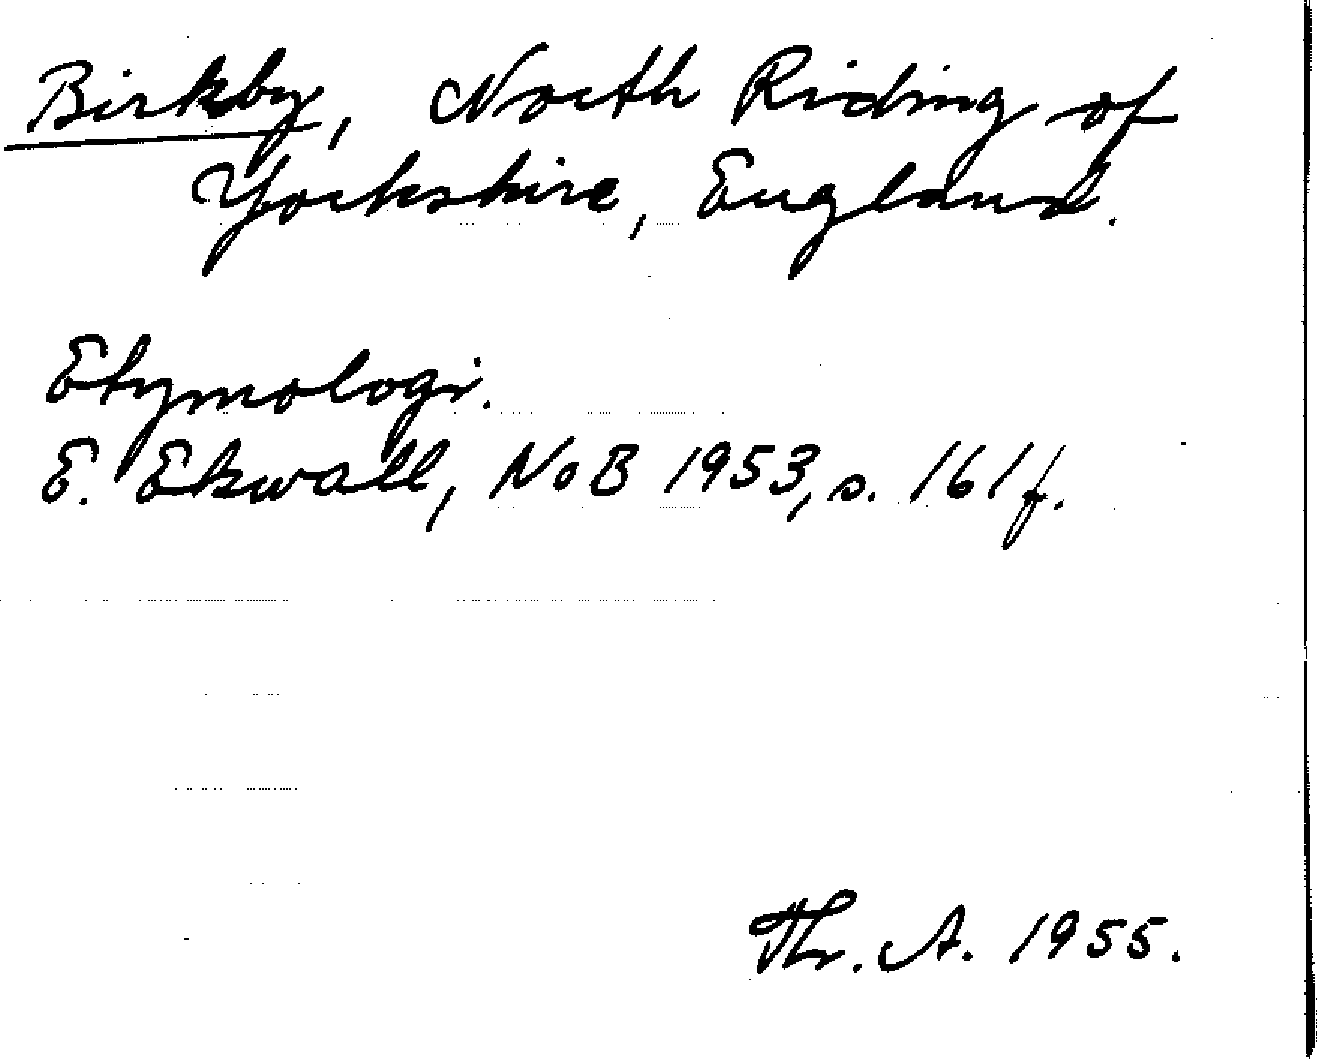 Birkby, North Riding of
Yorkshire, England.
Etymologi.
E. Ekwall, NoB 1953, s. 161 f.
Thr. A. 1955.